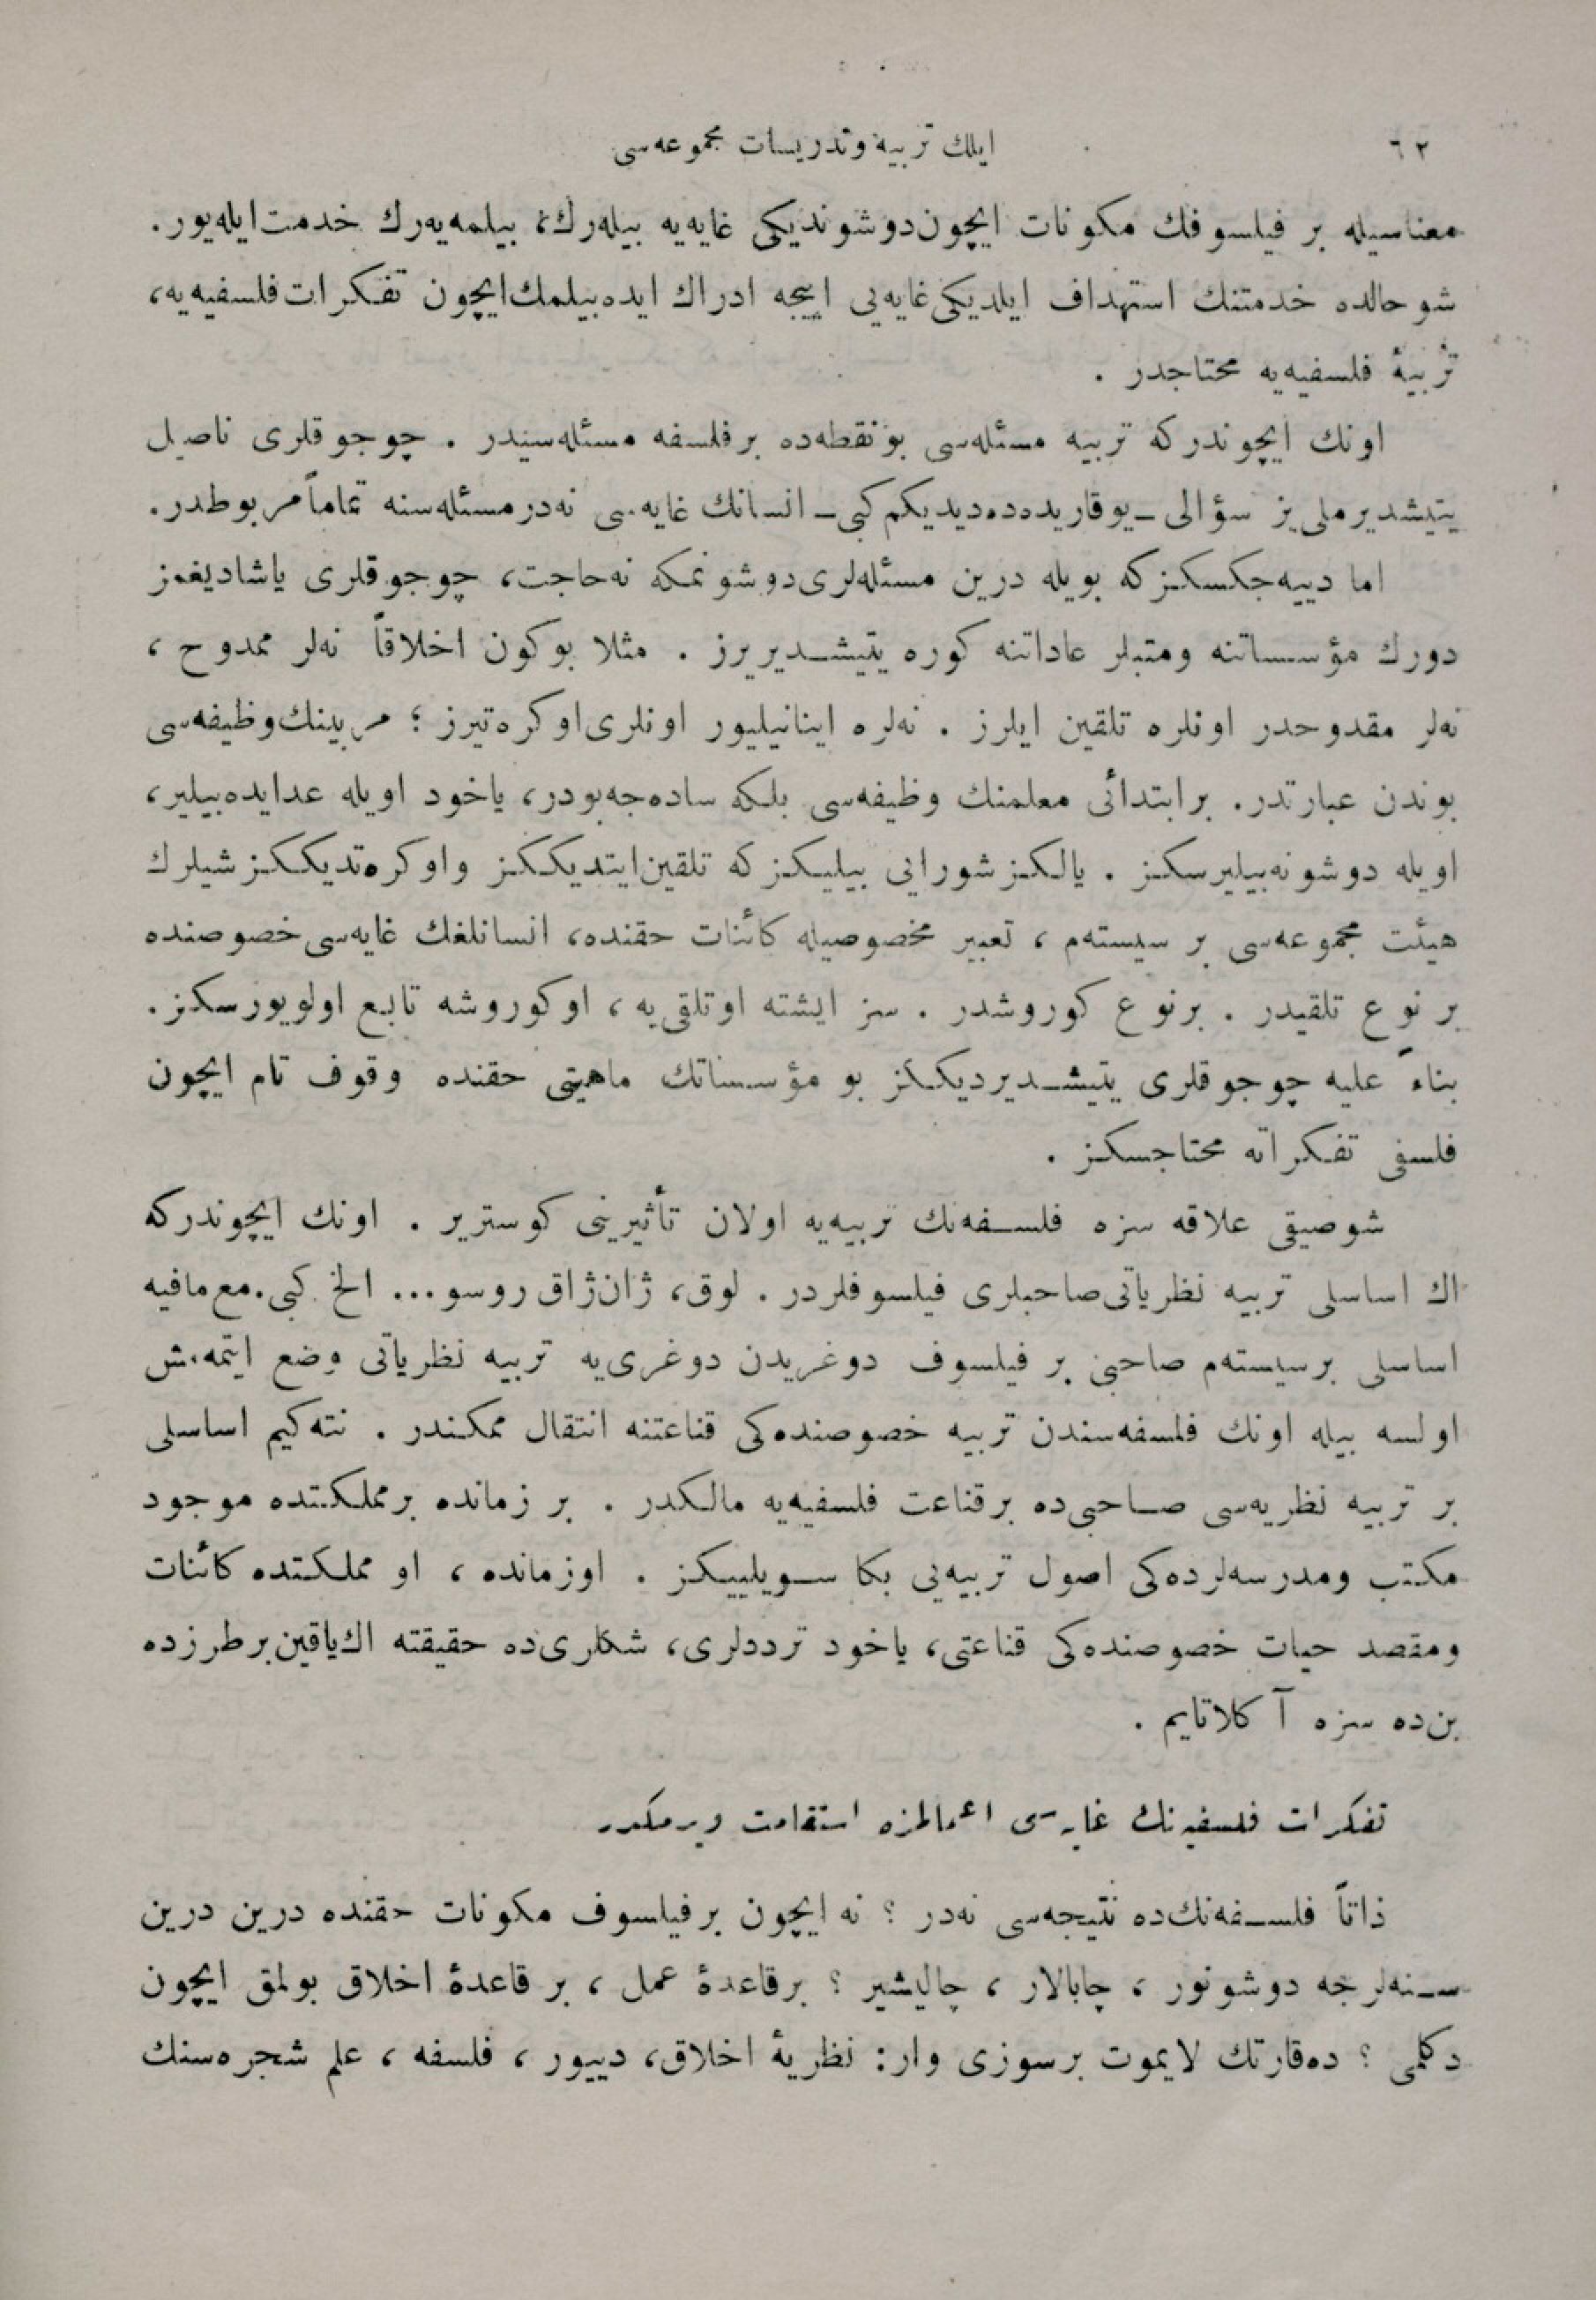 ٦٢
ایلك تربیه وتدریسات مجموعه‌سی
معناسیله بر فیلسوفك مكونات ایچون دوشوندیكی غایه‌یه بیله‌رك، بیلمه‌یه‌رك خدمت ایله‌یور.
شو حالده خدمتنك استهداف ایلدیكی غایه‌یی اییجه ادراك ایده‌بیلمك ایچون تفكرات فلسفیه‌یه،
تربیهٔ فلسفیه‌یه محتاجدر .
اونك ایچوندركه تربیه مسئله‌سی بو نقطه‌ده بر فلسفه مسئله‌سیدر . چوجوقلری ناصیل
یتیشدیرملی‌یز سؤالی ـ یوقاریده‌ده دیدیكم كبی ـ انسانك غایه‌سی نه‌در مسئله‌سنه تماماً مربوطدر.
اما دییه‌جكسكز كه بویله درین مسئله‌لری دوشونمكه نه حاجت، چوجوقلری یاشادیغمز
دورك مؤسساتنه ومتبلر عاداتنه كوره یتیشدیریرز . مثلا بوكون اخلاقاً نه‌لر ممدوح ،
نه‌لر مقدوحدر اونلره تلقین ایلرز . نه‌لره اینانیلیور اونلری اوكره‌تیرز ؛ مربینك وظیفه‌سی
بوندن عبارتدر. بر ابتدائی معلمنك وظیفه‌سی بلكه ساده‌جه بودر، یاخود اویله عد ایده‌بیلیر،
اویله دوشونه‌بیلیرسكز . یالكز شورانی بیلیكز كه تلقین ایتدیككز و اوكره‌تدیككز شیلرك
هیئت مجموعه‌سی بر سیسته‌م ، تعبیر مخصوصیله كائنات حقنده، انسانلغك غایه‌سی خصوصنده
بر نوع تلقیدر . بر نوع كوروشدر . سز ایشته او تلقی‌یه ، او كوروشه تابع اولویورسكز.
بناءً علیه چوجوقلری یتیشدیردیككز بو مؤسساتك ماهیتی حقنده وقوف تام ایچون
فلسفی تفكراته محتاجسكز .
شو صیقی علاقه سزه فلسفه‌نك تربیه‌یه اولان تأثیرینی كوستریر . اونك ایچوندركه
اك اساسلی تربیه نظریاتی صاحبلری فیلسوفلردر . لوق، ژان ژاق روسو... الخ كبی. مع مافیه
اساسلی بر سیسته‌م صاحبی بر فیلسوف دوغریدن دوغری‌یه تربیه نظریاتی وضع ایتمه‌مش
اولسه بیله اونك فلسفه‌سندن تربیه خصوصنده‌كی قناعتنه انتقال ممكندر . نته‌كیم اساسلی
بر تربیه نظریه‌سی صاحبی ده بر قناعت فلسفیه‌یه مالكدر . بر زمانده بر مملكتده موجود
مكتب ومدرسه‌لرده‌كی اصول تربیه‌یی بكا سویلییكز . او زمانده ، او مملكتده كائنات
ومقصد حیات خصوصنده‌كی قناعتی، یاخود ترددلری، شكلری ده حقیقته اك یاقین بر طرزده
بن ده سزه آكلاتایم .
تفكرات فلسفیه‌نك غایه‌سی اعمالمزه استقامت ویرمكدر
ذاتاً فلسفه‌نك ده نتیجه‌سی نه‌در ؟ نه ایچون بر فیلسوف مكونات حقنده درین درین
سنه‌لرجه دوشونور ، چابالار ، چالیشیر ؟ بر قاعدهٔ عمل ، بر قاعدهٔ اخلاق بولمق ایچون
دكلمی ؟ ده‌قارتك لایموت بر سوزی وار: نظریهٔ اخلاق، دییور ، فلسفه ، علم شجره‌سنك